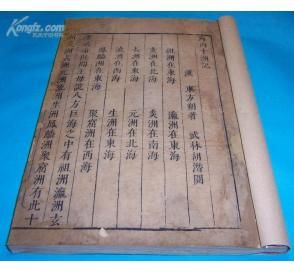 Kongfz.com
海內十洲記
漢 東方朔著 武林胡潛閱
祖洲在東海 瀛洲在東海
玄洲在北海 炎洲在南海
長洲在東海 元洲在北海
流洲在西海 生洲在東海
鳳麟洲在東海 聚窟洲在西海
漢武帝既聞王母說八方巨海之中有祖洲瀛洲玄
洲炎洲長洲元洲流洲生洲鳳麟洲聚窟洲有此十